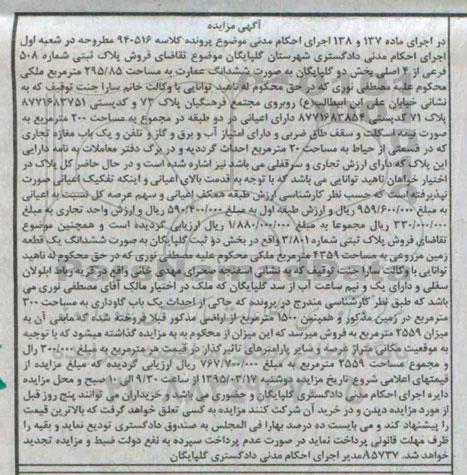 آگهی مزایده
در اجرای ماده ۱۳۷ و ۱۳۸ اجرای احکام مدنی موضوع پرونده کلاسه ۹۴۰۵۱۶ مطروحه در شعبه اول
اجرای احکام مدنی دادگستری شهرستان گلپایگان موضوع تقاضای فروش پلاک ثبتی شماره ۵۰۸
فرعی از ۲ اصلی بخش دو گلپایگان به صورت ششدانگ عمارت به مساحت ۲۹۵/۸۵ مترمربع ملکی
محکوم علیه مصطفی نوری که در حق محکوم له ناهید توانایی با وکالت خانم سارا جنت توقیف که به
نشانی خیابان علی ابن ابیطالب(ع) روبروی مجتمع فرهنگیان پلاک ۷۳ و کدپستی ۸۷۷۱۶۸۳۷۵۱
پلاک ۷۱ کدپستی ۸۷۷۱۶۸۳۸۵۴ دارای اعیانی در دو طبقه در مجموع به مساحت ۲۰۰ مترمربع به
صورت نیمه اسکلت و سقف طاق ضربی و دارای امتیاز آب و برق و گاز و تلفن و یک باب مغازه تجاری
که در قسمتی از حیاط به مساحت ۲۰ مترمربع احداث گردیده و در برگ دفتر معاملات به نامه دارایی
این پلاک که دارای ارزش تجاری و سرقفلی می باشد نیز اشاره شده است و در حال حاضر کل پلاک در
اختیار خواهان ناهید توانایی می باشد که با توجه به قدمت بالای اعیانی و اینکه تفکیک اعیانی صورت
نپذیرفته است که حسب نظر کارشناسی ارزش طبقه همکف اعیانی و سهم عرصه کل نسبت به اعیانی
به مبلغ ۹۵۹/۶۰۰/۰۰۰ ریال و ارزش طبقه اول به مبلغ ۵۹۰/۴۰۰/۰۰۰ ریال و ارزش واحد تجاری به مبلغ
۳۳۰/۰۰۰/۰۰۰ ریال مجموعا به مبلغ ۱/۸۸۰/۰۰۰/۰۰۰ ریال ارزیابی گردیده است و همچنین موضوع
تقاضای فروش پلاک ثبتی شماره ۳/۸۰۱ واقع در بخش دو ثبت گلپایگان به صورت ششدانگ یک قطعه
زمین مزروعی به مساحت ۴۳۵۹ مترمربع ملکی محکوم علیه مصطفی نوری که در حق محکوم له ناهید
توانایی با وکالت سارا جنت توقیف که به نشانی اسفنجه صحرای مهدی خانی واقع در قریه رباط ابلولان
سفلی و دارای یک و نیم ساعت آب از سد گلپایگان که ملک در اختیار مالک آقای مصطفی نوری می
باشد که طبق نظر کارشناسی مندرج در پرونده که حاکی از احداث یک باب گاوداری به مساحت ۳۰۰
مترمربع در زمین مذکور و همچنین ۱۵۰۰ مترمربع از اراضی مذکور قبلا فروخته شده که مابقی آن به
میزان ۲۵۵۹ مترمربع به فروش میرسد که این میزان از محکوم به به مزایده گذاشته میشود که با توجه
به موقعیت مکانی متراژ عرصه و سایر پارامترهای تاثیرگذار در قیمت هر مترمربع به مبلغ ۳۰۰/۰۰۰ ریال
و مجموع مساحت ۲۵۵۹ مترمربع به مبلغ ۷۶۷/۷۰۰/۰۰۰ ریال ارزیابی گردیده که مبلغ مزایده از
قیمتهای اعلامی شروع تاریخ مزایده دوشنبه ۱۳۹۵/۰۳/۱۷ از ساعت ۹/۳۰ الی ۱۰ صبح و محل مزایده
دایره اجرای احکام مدنی دادگستری گلپایگان و حضوری می باشد خریداران می توانند پنج روز قبل
از مورد مزایده دیدن و در خرید آن شرکت کنند مزایده به کسی تعلق خواهد گرفت که بالاترین قیمت
را پیشنهاد کند و می بایست ده درصد بهارا فی المجلس به صندوق دادگستری تودیع نماید و بقیه را
ظرف مهلت قانونی پرداخت نماید در صورت عدم پرداخت سپرده به نفع دولت ضبط و مزایده تجدید
خواهد شد. ۸۵۷۳۷م مدیر اجرای احکام مدنی دادگستری گلپایگان